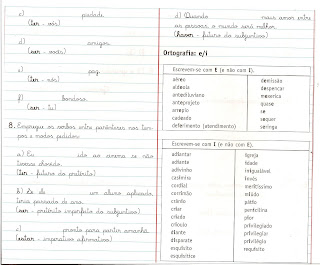 c) piedade.
(ter - vós)
d) amigos.
(ser - vocês)
e) paz.
(ter - nós)
f) bondoso.
(ser - tu)
8. Empregue os verbos entre parênteses nos tem-
pos e modos pedidos:
a) Eu ido ao cinema se não
tivesse chovido.
(ter - futuro do pretérito)
b) Se ele um aluno aplicado,
teria passado de ano.
(ser - pretérito imperfeito do subjuntivo)
c) pronto para partir amanhã.
(estar - imperativo afirmativo)
d) Quando mais amor entre
as pessoas, o mundo será melhor.
(haver - futuro do subjuntivo)
Ortografia: e/i
Escrevem-se com E (e não com I).
aéreo dentição
aldeola despencar
antediluviano mexerica
anteprojeto quase
arrepio se
cadeado sequer
deferimento (atendimento) seringa
Escrevem-se com I (e não com E).
adiantar Igreja
adiante Idade
adivinho inigualável
casimira invés
cordial meritíssimo
corrimão miúdo
crânio pátio
criar pontifina
criada pior
crioulo privilegiado
diante privilegiar
disparate privilégio
esquisito requisito
esquisitice